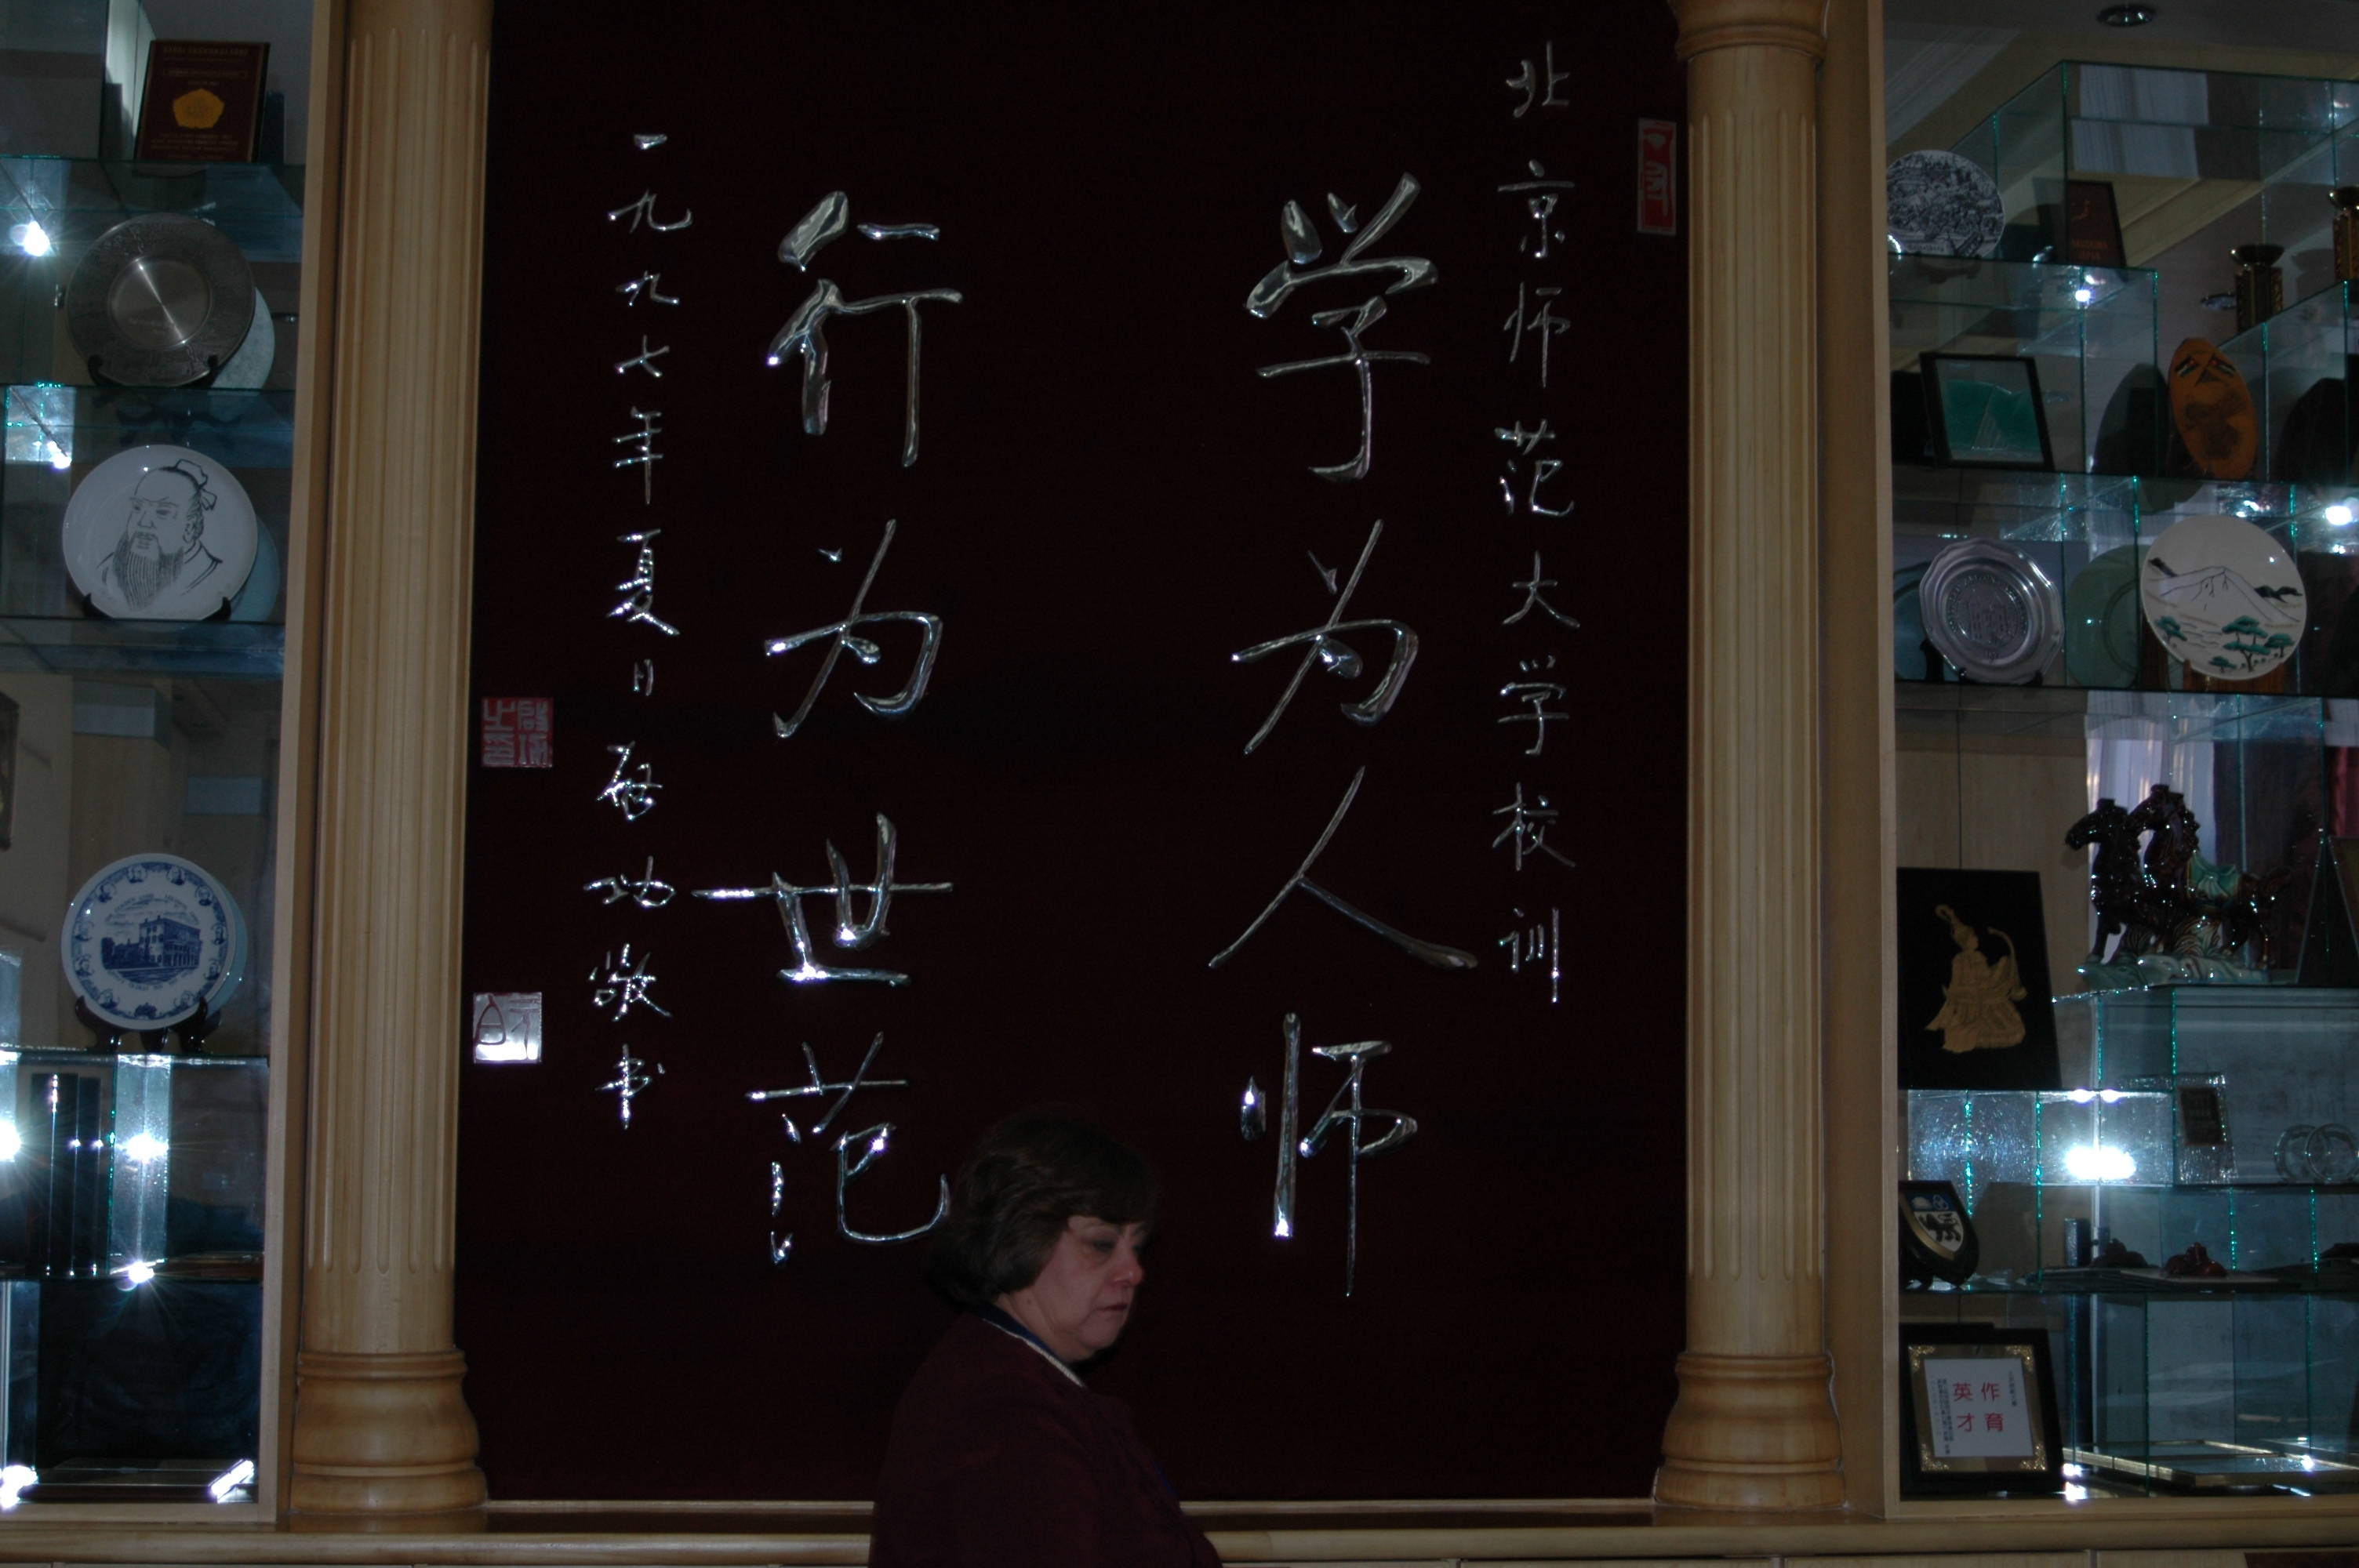 北京师范大学校训
学为人师
行为世范
一九九七年夏日启功敬书
作育
英才